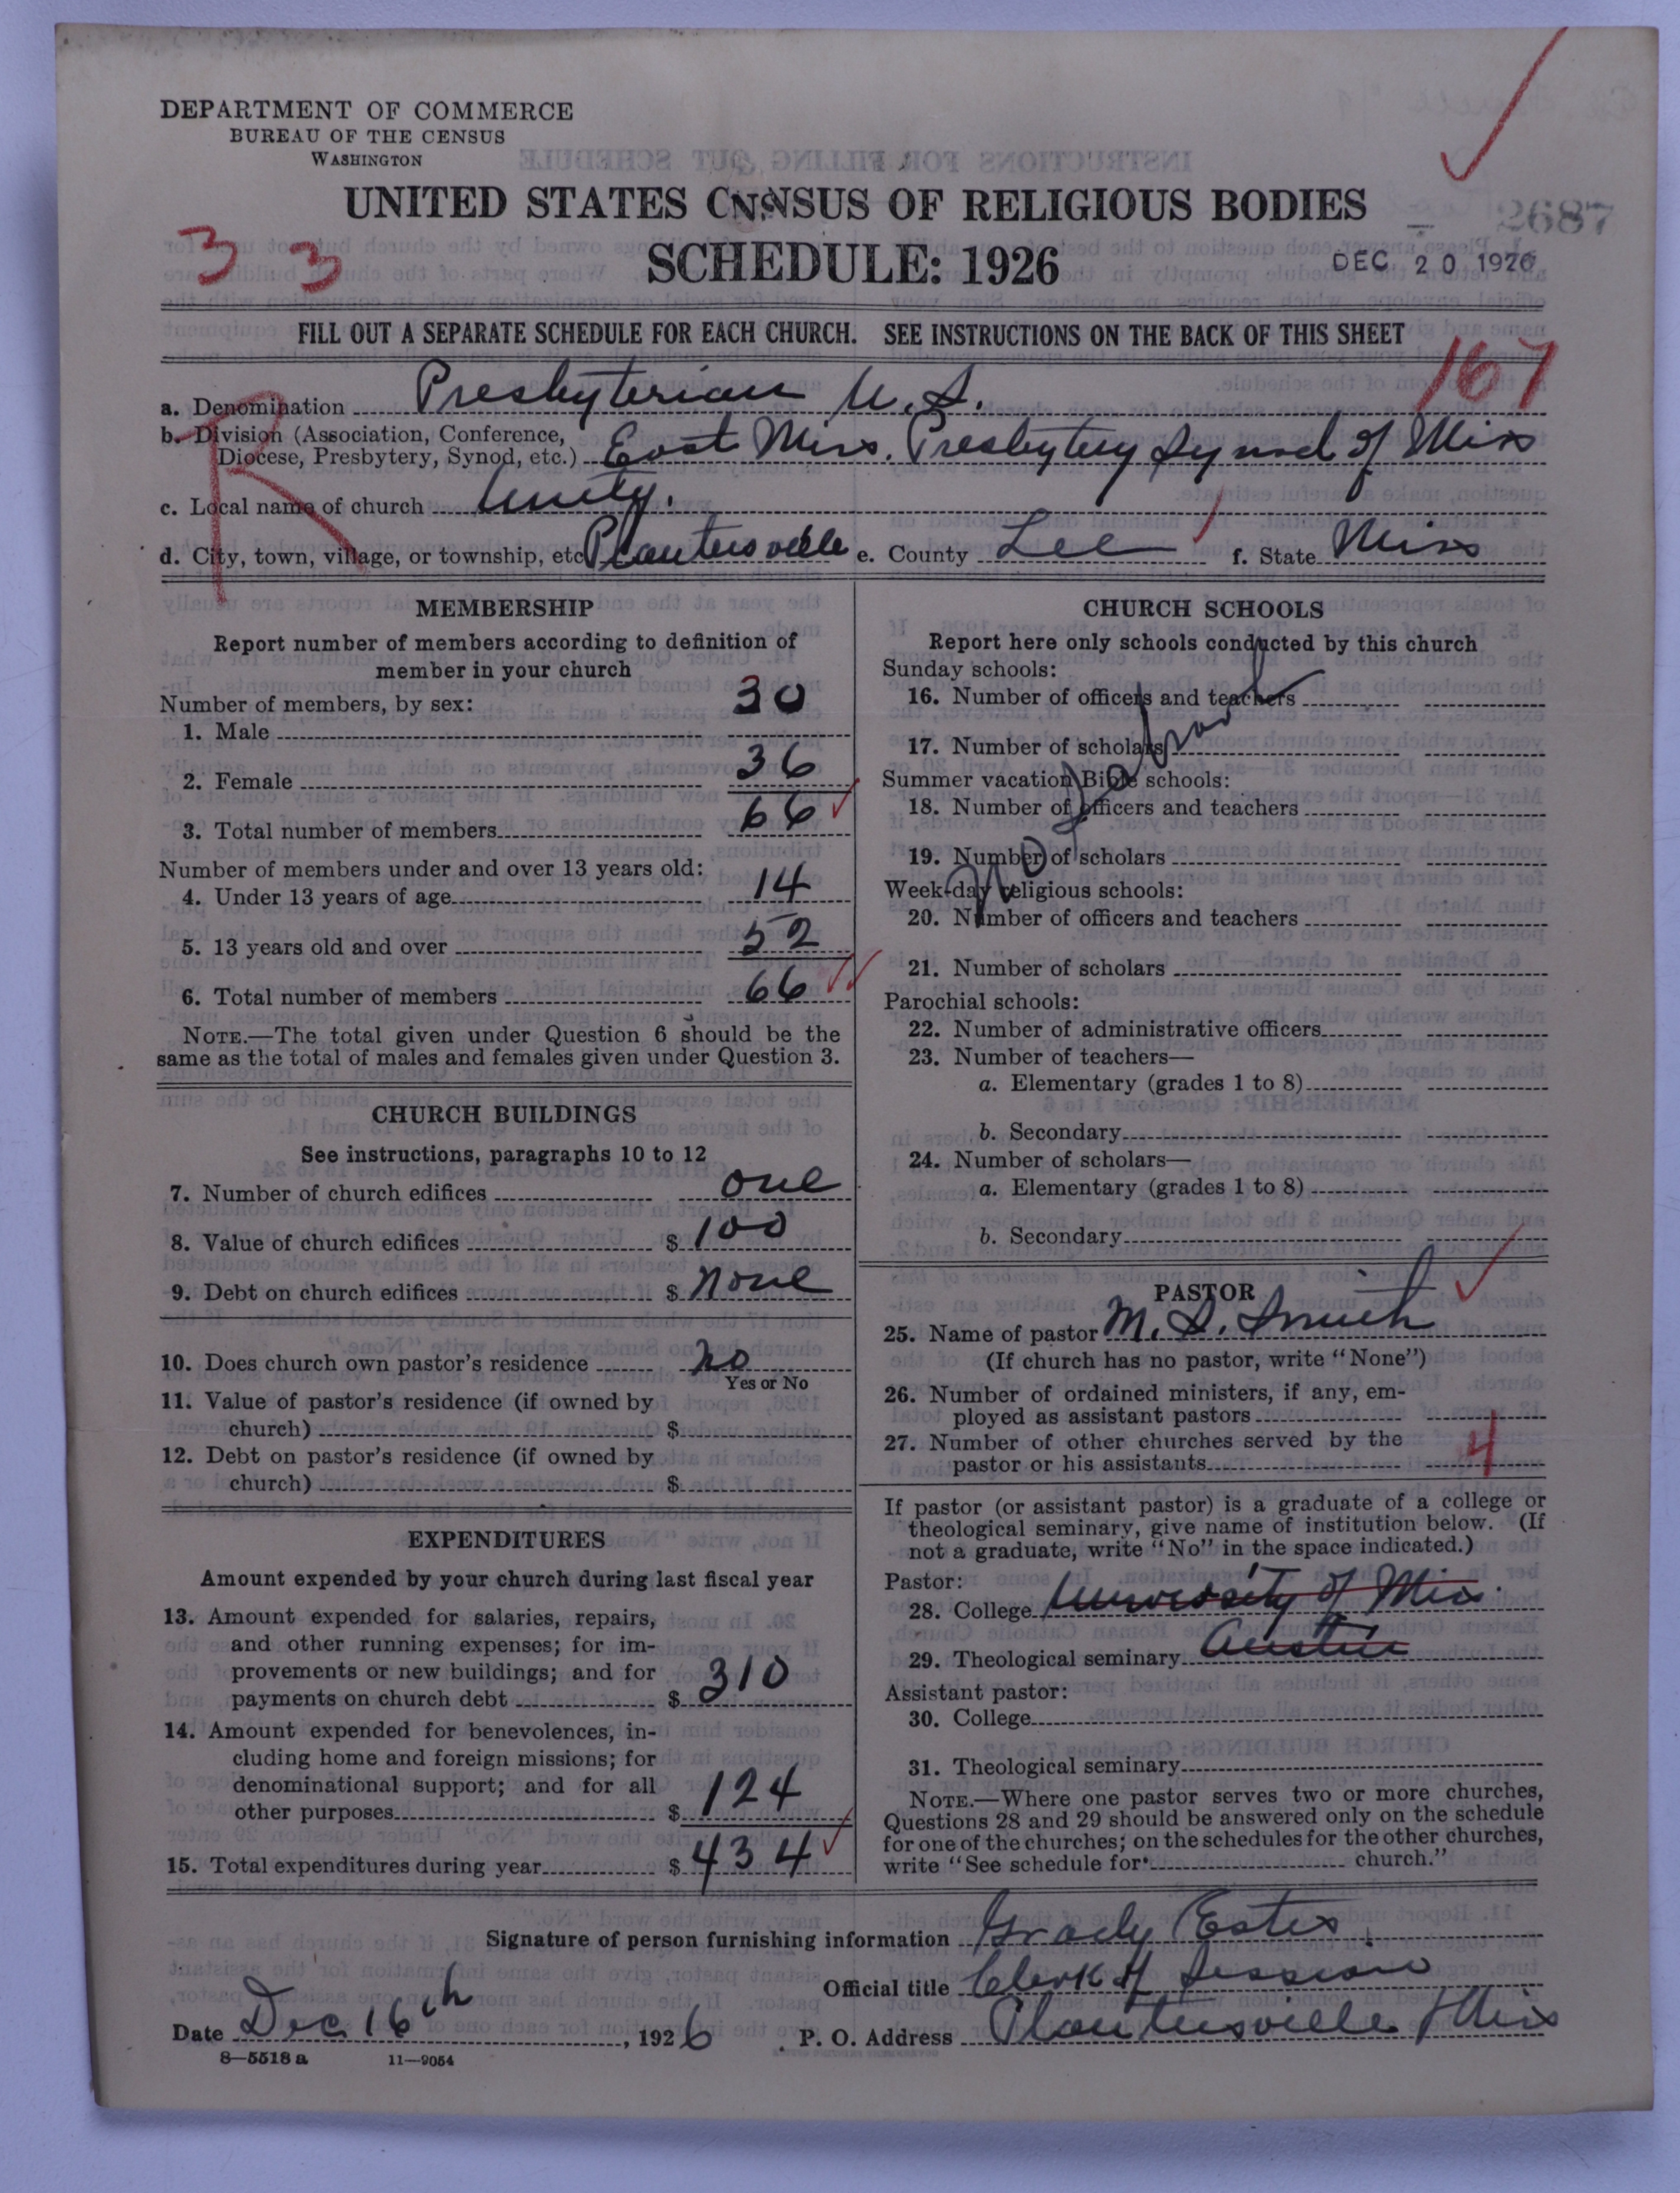 DEPARTMENT OF COMMERCE
BUREAU OF THE CENSUS
WASHINGTON
UNITED STATES CENSUS OF RELIGIOUS BODIES
2687
3 3
SCHEDULE: 1926
DEC 20 1926
FILL OUT A SEPARATE SCHEDULE FOR EACH CHURCH. SEE INSTRUCTIONS ON THE BACK OF THIS SHEET
167
R
a. Denomination Presbyterian U.S.
b. Division (Association, Conference,
Diocese, Presbytery, Synod, etc.) East Miss. Presbytery Synod of Miss
c. Local name of church Unity.
d. City, town, village, or township, etc. Plantersville e. County Lee f. State Miss
MEMBERSHIP
Report number of members according to definition of
member in your church
Number of members, by sex:
1. Male 30
2. Female 36
3. Total number of members 66
Number of members under and over 13 years old:
4. Under 13 years of age 14
5. 13 years old and over 52
6. Total number of members 66
NOTE.—The total given under Question 6 should be the
same as the total of males and females given under Question 3.
CHURCH BUILDINGS
See instructions, paragraphs 10 to 12
7. Number of church edifices one
8. Value of church edifices $ 100
9. Debt on church edifices $ none
10. Does church own pastor's residence no
Yes or No
11. Value of pastor's residence (if owned by
church) $
12. Debt on pastor's residence (if owned by
church) $
EXPENDITURES
Amount expended by your church during last fiscal year
13. Amount expended for salaries, repairs,
and other running expenses; for im-
provements or new buildings; and for
payments on church debt $ 310
14. Amount expended for benevolences, in-
cluding home and foreign missions; for
denominational support; and for all
other purposes $ 124
15. Total expenditures during year $ 434
CHURCH SCHOOLS
Report here only schools conducted by this church
Sunday schools:
16. Number of officers and teachers
17. Number of scholars
Summer vacation Bible schools:
18. Number of officers and teachers
19. Number of scholars
Week-day religious schools:
20. Number of officers and teachers
21. Number of scholars
No School
Parochial schools:
22. Number of administrative officers
23. Number of teachers—
a. Elementary (grades 1 to 8)
b. Secondary
24. Number of scholars—
a. Elementary (grades 1 to 8)
b. Secondary
PASTOR
25. Name of pastor M. S. Smith
(If church has no pastor, write "None")
26. Number of ordained ministers, if any, em-
ployed as assistant pastors
27. Number of other churches served by the
pastor or his assistants 4
If pastor (or assistant pastor) is a graduate of a college or
theological seminary, give name of institution below. (If
not a graduate, write "No" in the space indicated.)
Pastor:
28. College University of Miss.
29. Theological seminary Austin
Assistant pastor:
30. College
31. Theological seminary
NOTE.—Where one pastor serves two or more churches,
Questions 28 and 29 should be answered only on the schedule
for one of the churches; on the schedules for the other churches,
write "See schedule for church."
Signature of person furnishing information Grady Estes
Official title Clerk of Session
Date Dec. 16th, 1926 P. O. Address Plantersville Miss
8—5518 a 11—9054